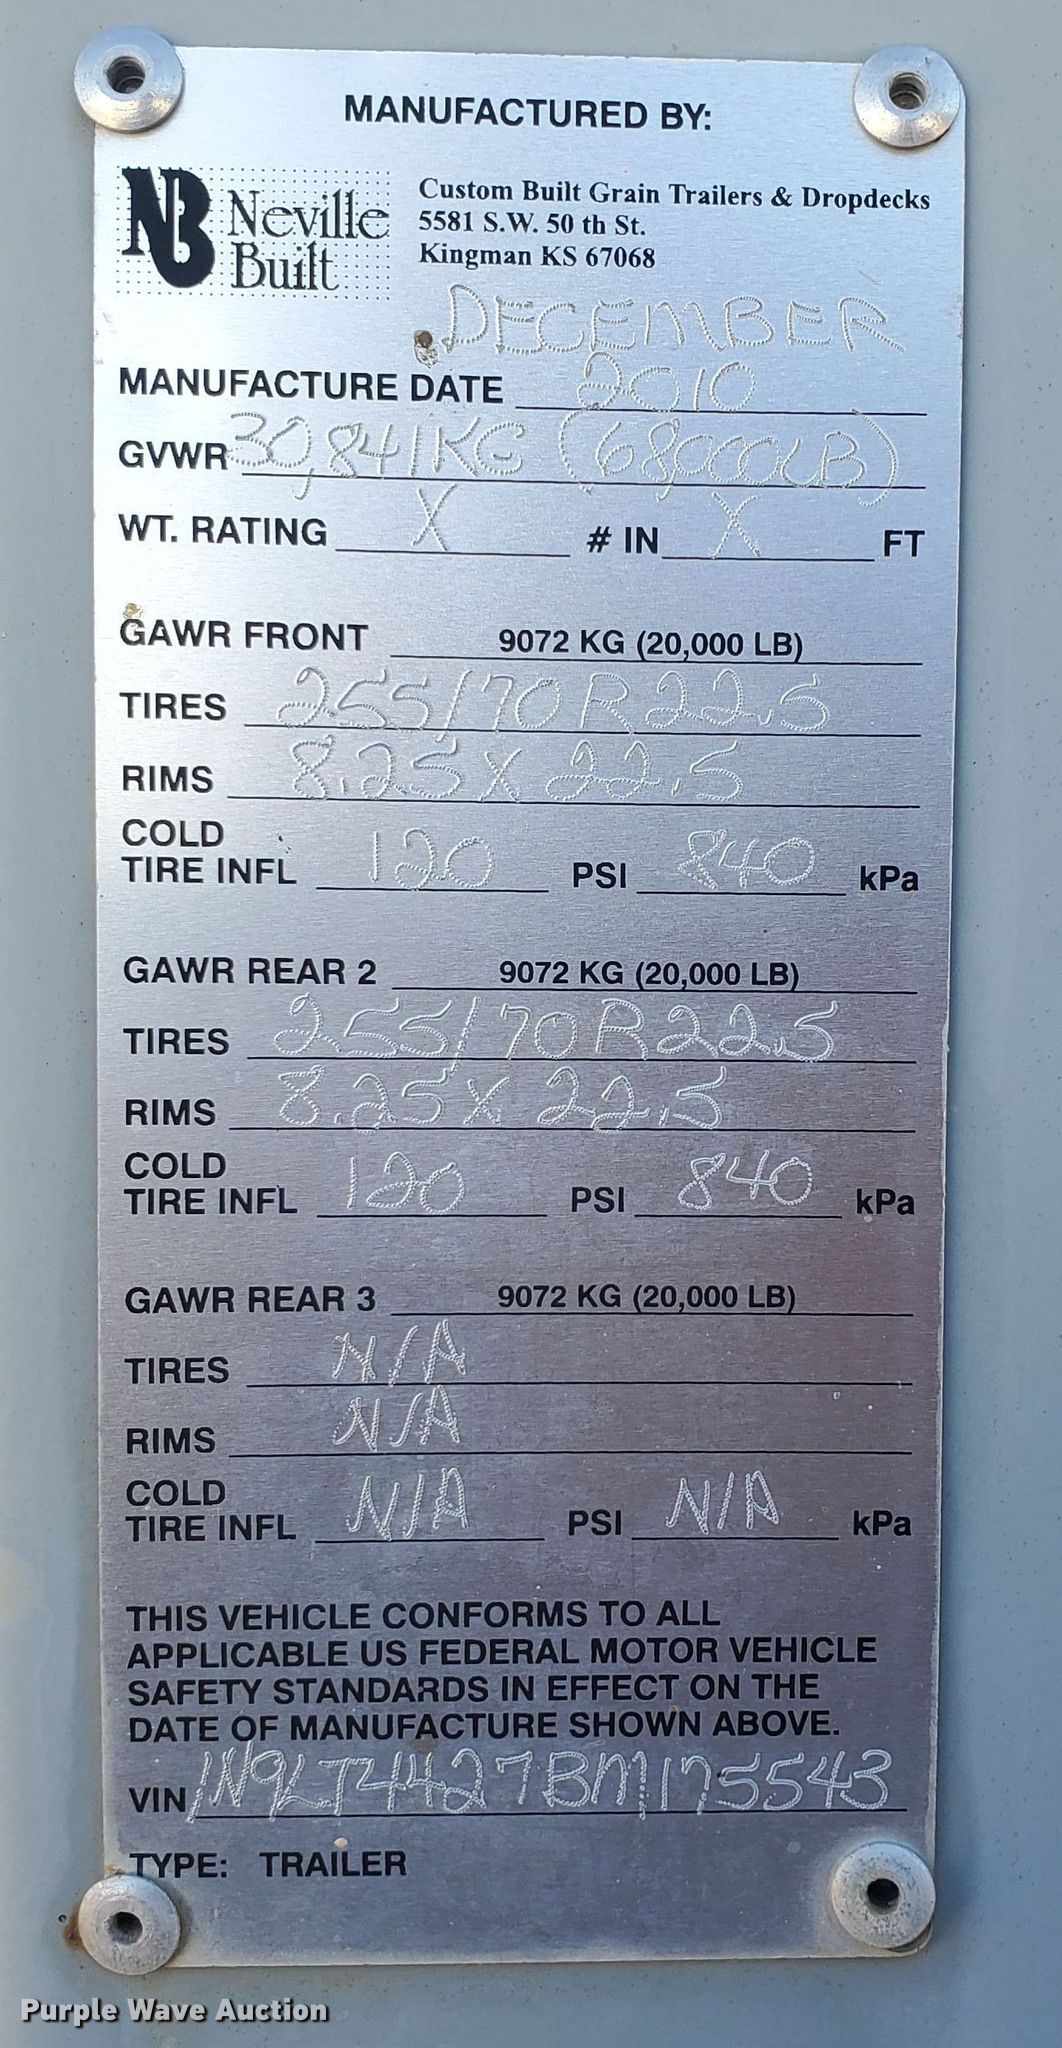 MANUFACTURED BY:
NB Neville Built
Custom Built Grain Trailers & Dropdecks
5581 S.W. 50 th St.
Kingman KS 67068
DECEMBER
MANUFACTURE DATE 2010
GVWR 30,841KG (68,000LB)
WT. RATING X # IN X FT
GAWR FRONT 9072 KG (20,000 LB)
TIRES 255/70R22.5
RIMS 8.25X22.5
COLD
TIRE INFL 120 PSI 840 kPa
GAWR REAR 2 9072 KG (20,000 LB)
TIRES 255/70R22.5
RIMS 8.25X22.5
COLD
TIRE INFL 120 PSI 840 kPa
GAWR REAR 3 9072 KG (20,000 LB)
TIRES N/A
RIMS N/A
COLD
TIRE INFL N/A PSI N/A kPa
THIS VEHICLE CONFORMS TO ALL
APPLICABLE US FEDERAL MOTOR VEHICLE
SAFETY STANDARDS IN EFFECT ON THE
DATE OF MANUFACTURE SHOWN ABOVE.
VIN 1N9LT4427BM175543
TYPE: TRAILER
Purple Wave Auction